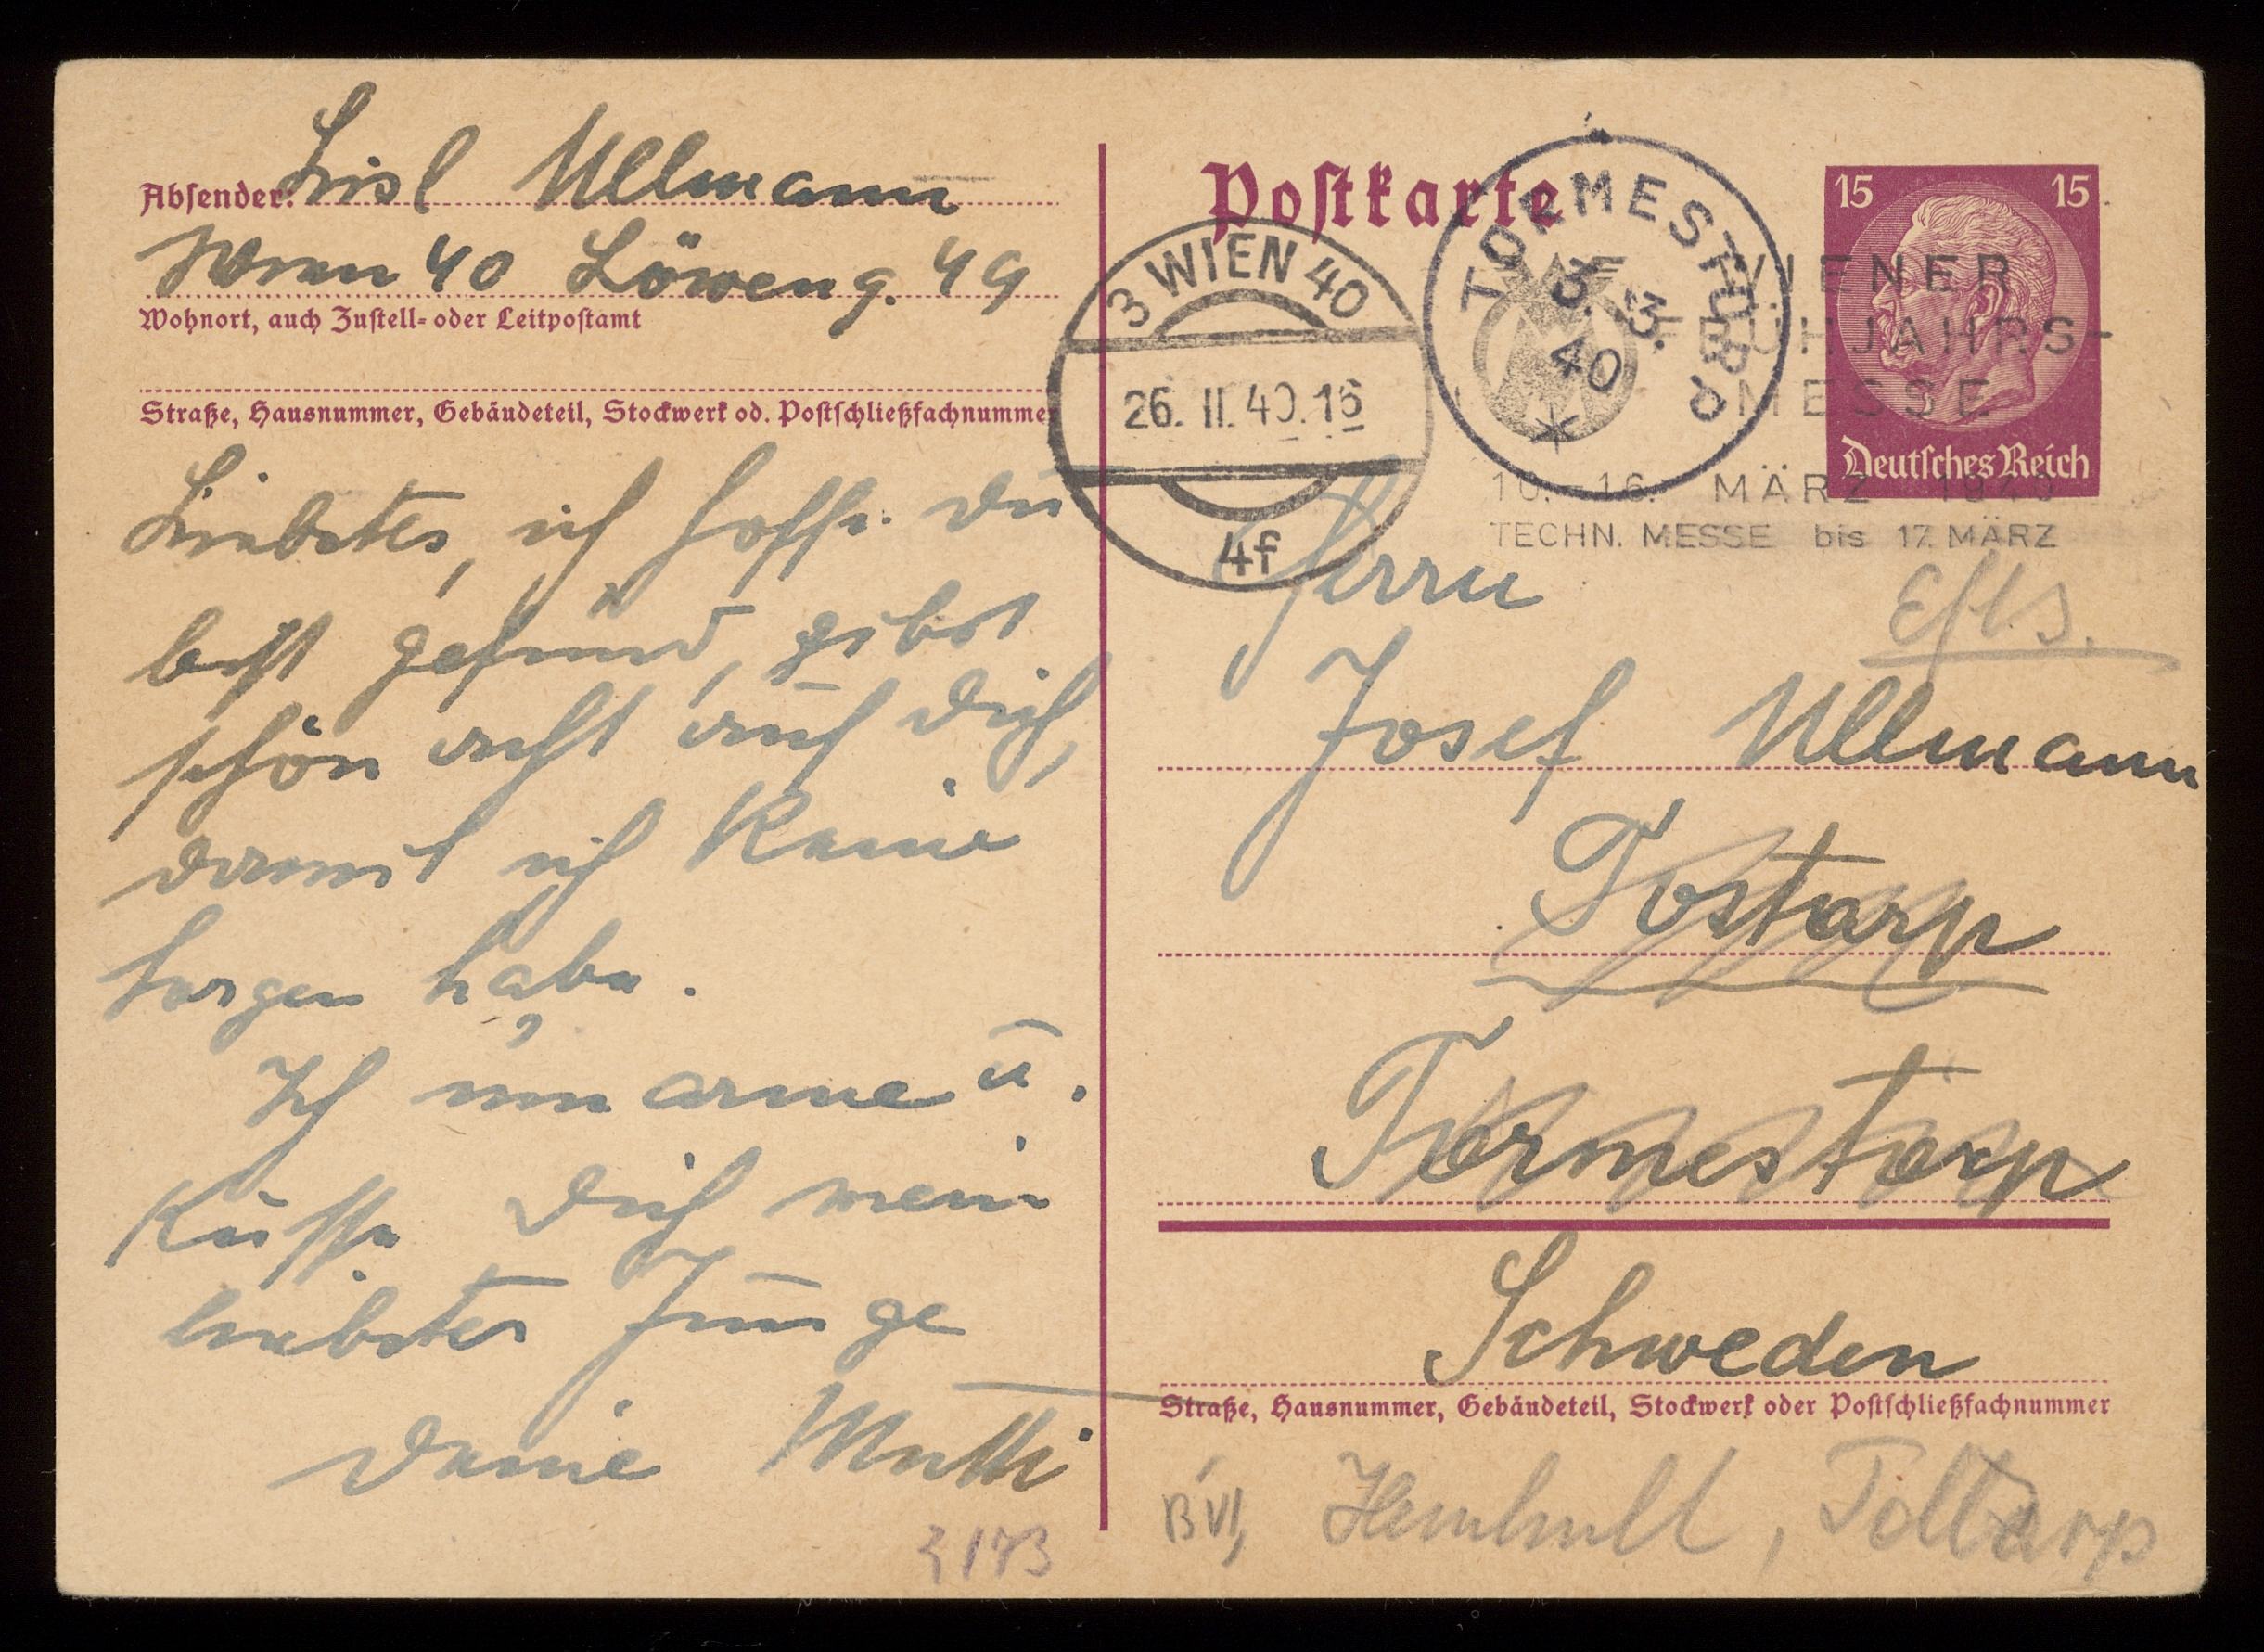 Lisl Ullmann
Absender:
Wien 40 Löweng. 49
Wohnort, auch Zustell- oder Leitpostamt
Straße, Hausnummer, Gebäudeteil, Stockwerk od. Postschließfachnummer
Liebster, ich hoffe du
bist gesund, gibst
schön acht auf dich,
damit ich keine
Sorgen habe.
Ich umarme u.
küsse dich mein
liebster Junge
deine Mutti
3173
Postkarte
3 WIEN 40
26. II. 40. 16
4f
TORMESTORP
3. 3. 40
WIENER
FRÜHJAHRS-
MESSE
10.-16. MÄRZ 1940
TECHN. MESSE bis 17. MÄRZ
15 15
Deutsches Reich
Herrn
Efts.
Josef Ullmann
Tostarp
Tormestorp
Schweden
Straße, Hausnummer, Gebäudeteil, Stockwerk oder Postschließfachnummer